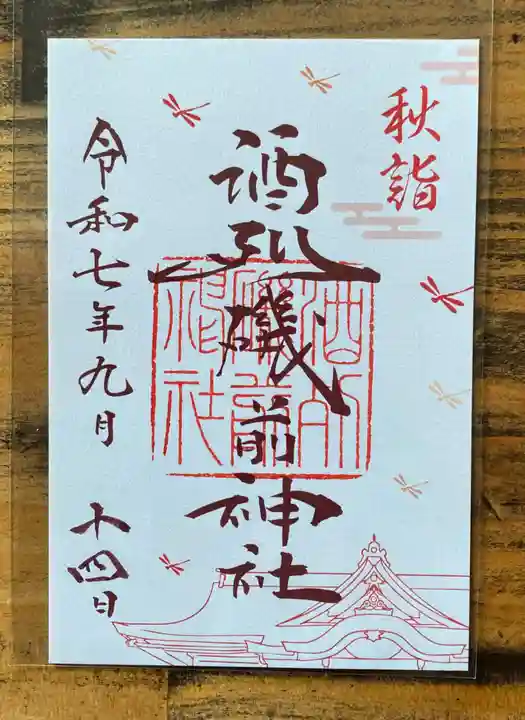 秋詣
酒列磯前神社
酒列磯前神社
令和七年九月十四日